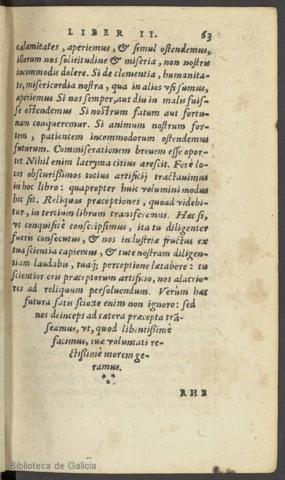 LIBER II. 63
calamitates, aperiemus, & simul ostendemus,
illorum nos solicitudine & miseria, non nostris
incommodis dolere. Si de clementia, humanita-
te, misericordia nostra, qua in alios vsi sumus,
aperiemus Si nos semper, aut diu in malis fuis-
se ostendemus Si nostrum fatum aut fortu-
nam conqueremur. Si animum nostrum for-
tem, patientem incommodorum ostendemus
futurum. Commiserationem breuem esse opor-
tet. Nihil enim lacryma citius arescit. Ferè lo-
cos obscurißimos totius artificij tractauimus
in hoc libro: quapropter huic volumini modus
hic sit. Reliquas præceptiones, quoad videbi-
tur, in tertium librum transferemus. Hæc si,
vt conquisitè conscripsimus, ita tu diligenter
fueris consecutus, & nos industriæ fructus ex
tua scientia capiemus, & tute nostram diligen-
tiam laudabis, tuaq; perceptione lætabere: tu
scientior eris præceptorum artificio, nos alacrio-
res ad reliquum persoluendum. Verùm hæc
futura satis scio: te enim non ignoro: sed
nos deinceps ad cætera præcepta trā-
seamus, vt, quod libentißimè
facimus, tuæ voluntati re-
ctißimè morem ge-
ramus.
RHE
Biblioteca de Galicia